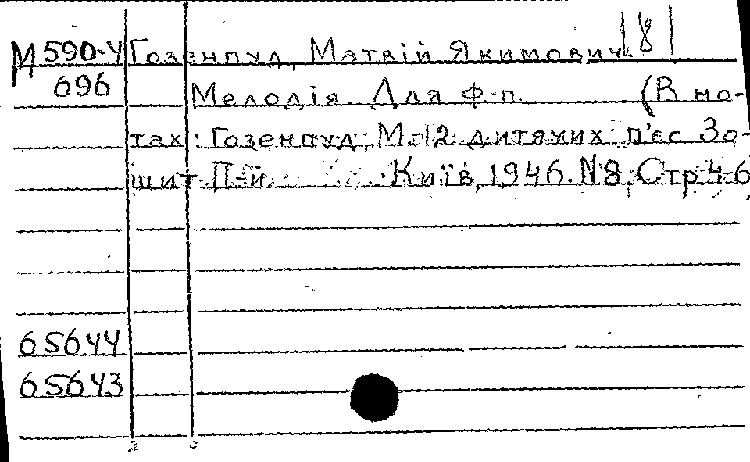 |8|
М 590-У Гозенпуд, Матвій Якимович.
696 Мелодія. Для ф-п. (В но-
тах: Гозенпуд, М. 12 дитячих п'єс Зо-
шит II-й. Київ, 1946. N8. Стр 4-6
65644
65643